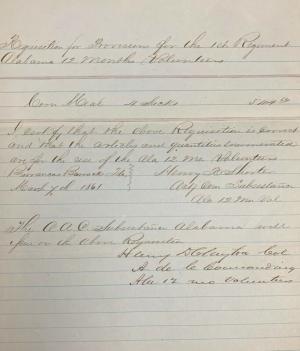 Requisition for Provisions for the 1st Regiment
Alabama 12 Months Volunteers
Corn Meal 4 Sacks
I certify that the above Requisition is correct
and that the articles and quantities enumerated
are for the use of the Ala 12 Mo Volunteers
Barrancas Barracks Fla Henry R Shorter
March 7th 1861 Act Com Subsistence
Ala 12 Mo Vol
The A. A. C. Subsistence Alabama will
issue on the above Requisition
Henry D Clayton Col
A de Commanding
Ala 12 mo Volunteers